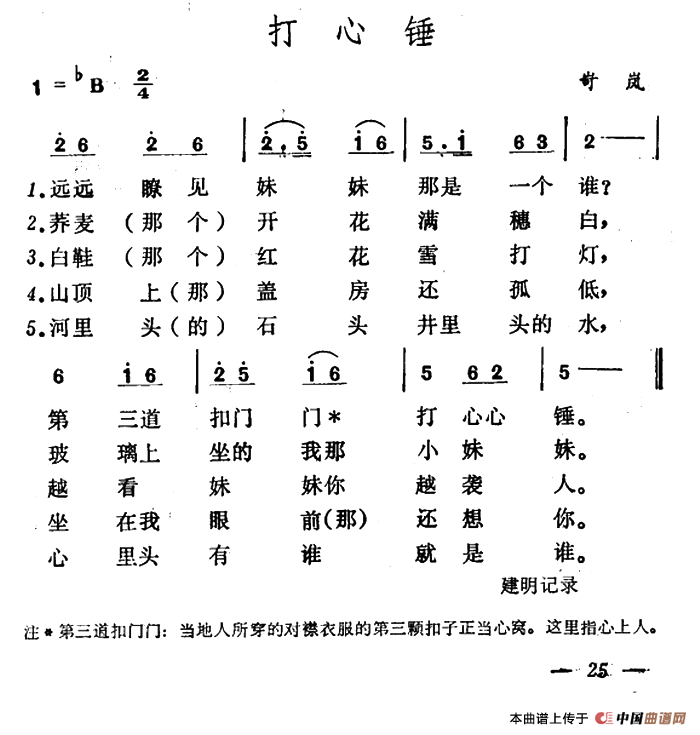 打心锤
1=♭B 2/4 岢岚
2̇6 2̇ 6 | 2̇.5̇ i̇6 | 5.i̇ 63 | 2 — |
1.远远 瞭见 妹 妹 那是 一个 谁?
2.荞麦(那个)开 花 满 穗 白,
3.白鞋(那个)红 花 雪 打 灯,
4.山顶 上(那)盖 房 还 孤 低,
5.河里 头(的)石 头 井里 头的 水,
6 i̇6 | 2̇5̇ i̇6 | 5 62 | 5 — ‖
第 三道 扣门 门* 打 心心 锤。
玻 璃上 坐的 我那 小 妹 妹。
越 看 妹 妹你 越 袭 人。
坐 在我 眼 前(那) 还 想 你。
心 里头 有 谁 就 是 谁。
建明记录
注*第三道扣门门:当地人所穿的对襟衣服的第三颗扣子正当心窝。这里指心上人。
— 25 —
本曲谱上传于 中国曲谱网